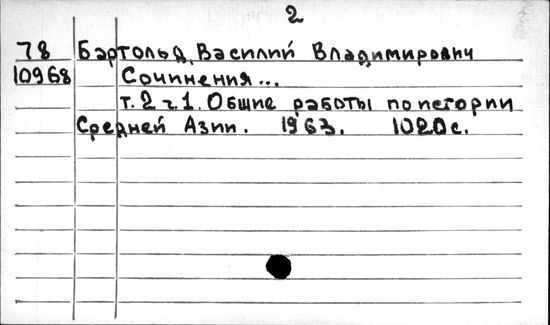 2
78 Бартольд, Василий Владимирович
10968 Сочинения...
т. 2 ч 1. Общие работы по истории
Средней Азии. 1963. 1020 с.